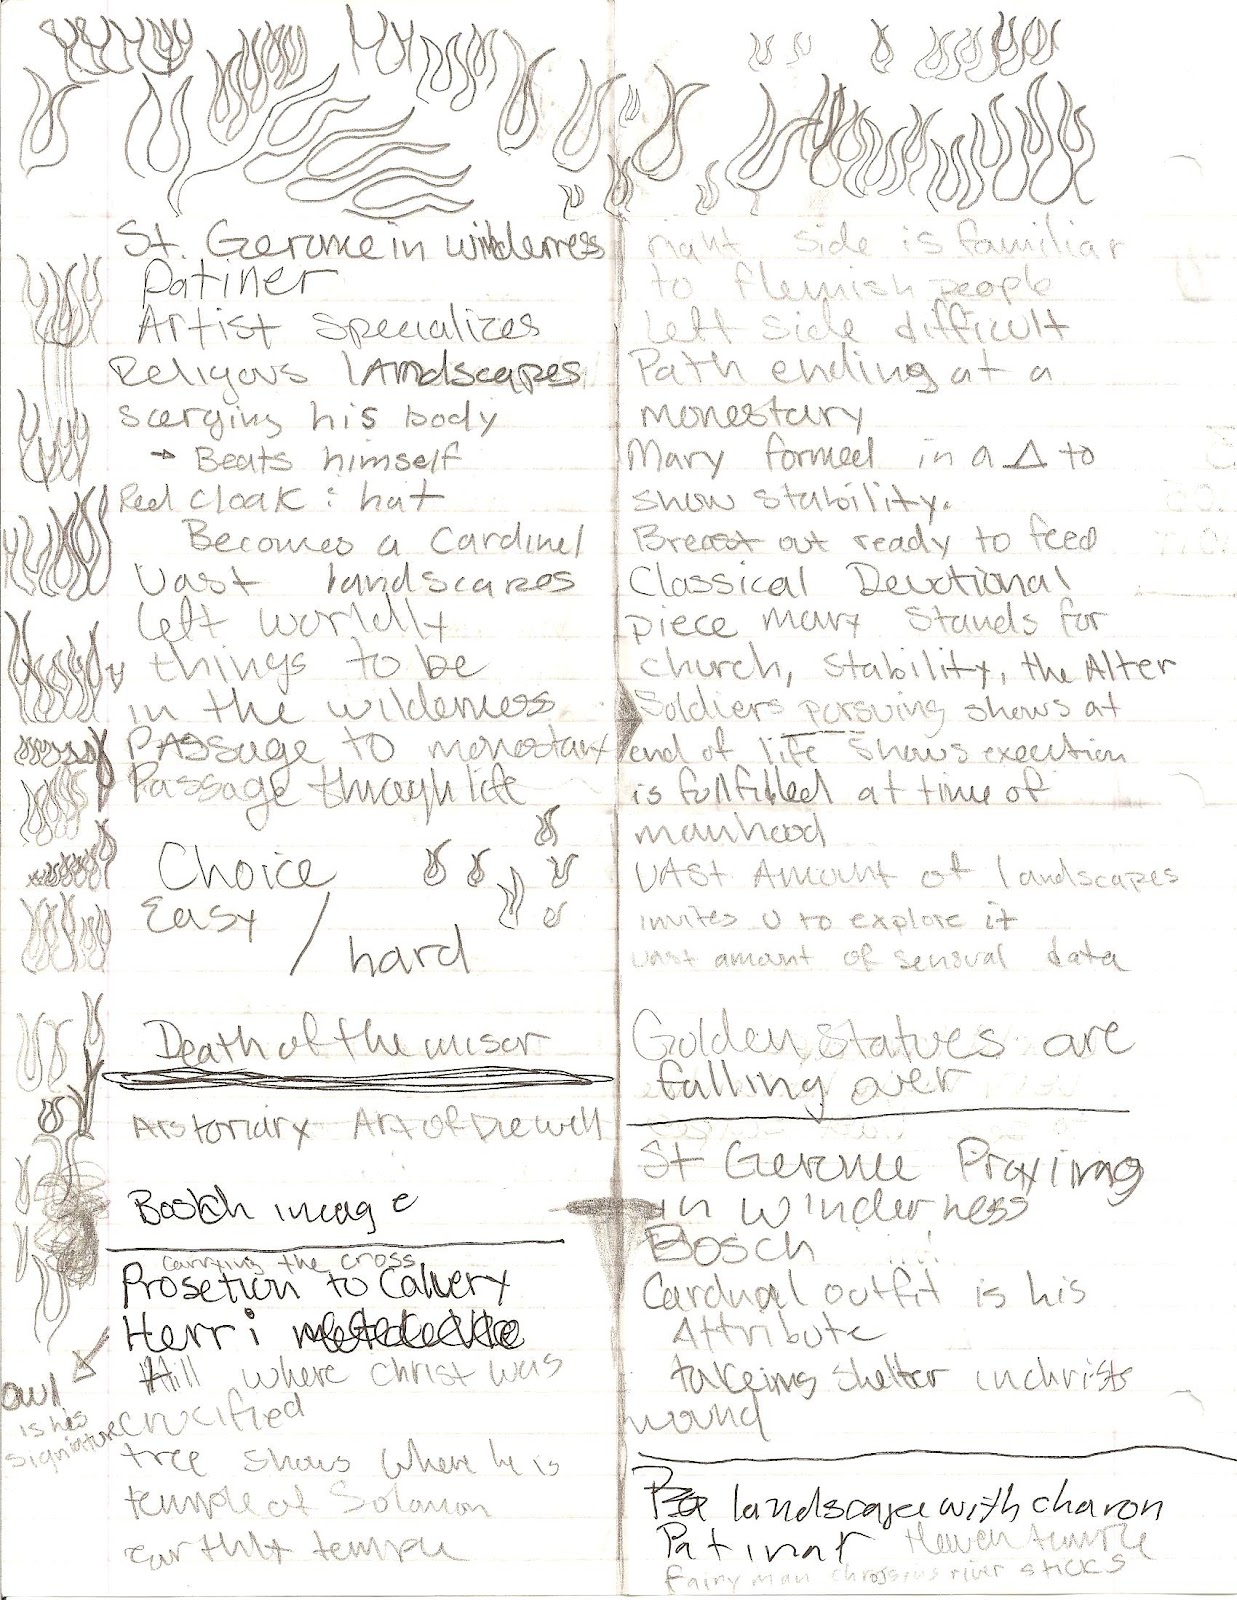 St. Gerome in wilderness
Patiner
Artist specializes
Religous landscapes
scerging his body
→ Beats himself
Red cloak : hat
Becomes a Cardinel
Vast landscapes
left worldly
things to be
in the wilderness
Passage to monostary
Passage through life
Choice
Easy / hard
Death of the miser
Arstoriary Art of Die well
Bosch image
Carrying the cross
Prosetion to Calvery
Herri
Hill where christ was
crucified
owl
is his
signiature
tree shows where he is
temple of Solomon
earthly temple
right side is familiar
to flemish people
left side difficult
Path ending at a
monestary
Mary formed in a Δ to
show stability.
Breast out ready to feed
Classical Devotional
piece mary stands for
church, stability, the Alter
Soldiers pursuing shows at
end of life shows execution
is fullfilled at time of
manhood
VAST Amount of landscapes
invites U to explore it
vast amant of sensual data
Golden statues are
falling over
St Gerome Praying
in winderness
Bosch
Cardunal outfit is his
Attribute
takeing shelter in christs
wound
landscape with charon
Patinar Heaven temple
fairy man chrossing river sticks